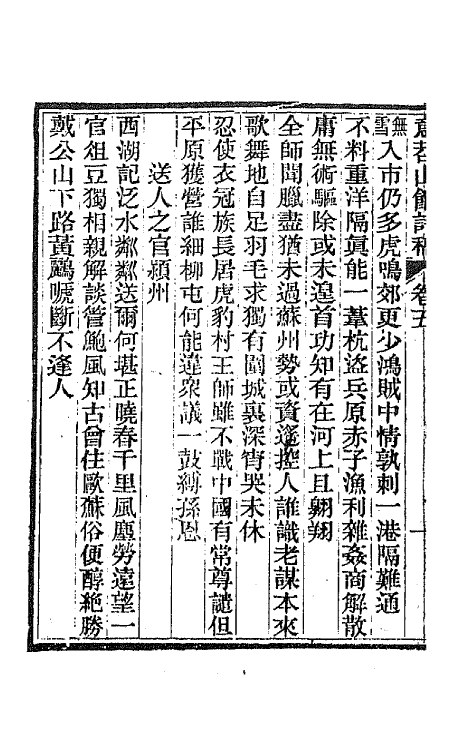 意苕山館詩稿 卷五 一
無雪入市仍多虎鳴郊更少鴻賊中情孰刺一港隔難通
不料重洋隔眞能一葦杭盜兵原赤子漁利雜姦商解散
庸無術驅除或未遑首功知有在河上且翺翔
全師聞臘盡猶未過蘇州勢或資遙控人誰識老謀本來
歌舞地自足羽毛求獨有圍城裏深宵哭未休
忍使衣冠族長居虎豹村王師雖不戰中國有常尊譴但
平原獲營誰細柳屯何能違衆議一鼓縛孫恩
送人之官潁州
西湖記泛水粼粼送爾何堪正曉春千里風塵勞遠望一
官俎豆獨相親解談管鮑風知古曾住歐蘇俗便醇絶勝
戴公山下路黃鸝嗁斷不逢人